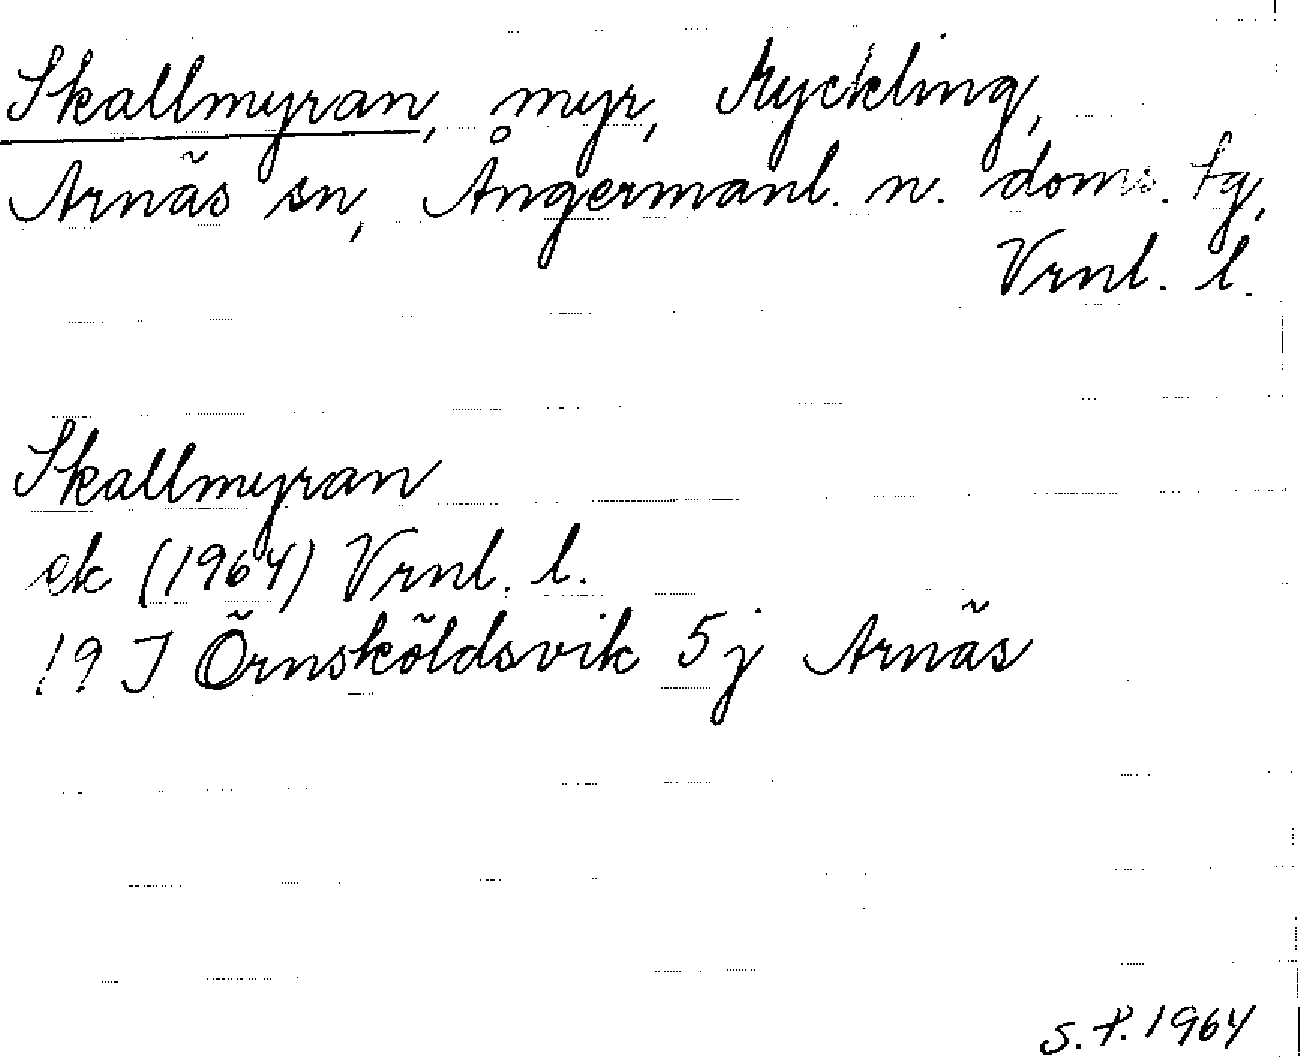 Skallmyran, myr, Kyckling,
Arnäs sn, Ångermanl. n. doms. tg,
Vrnl. l.
Skallmyran
ek (1964) Vrnl. l.
19 J Örnsköldsvik 5 j Arnäs
S.P. 1964